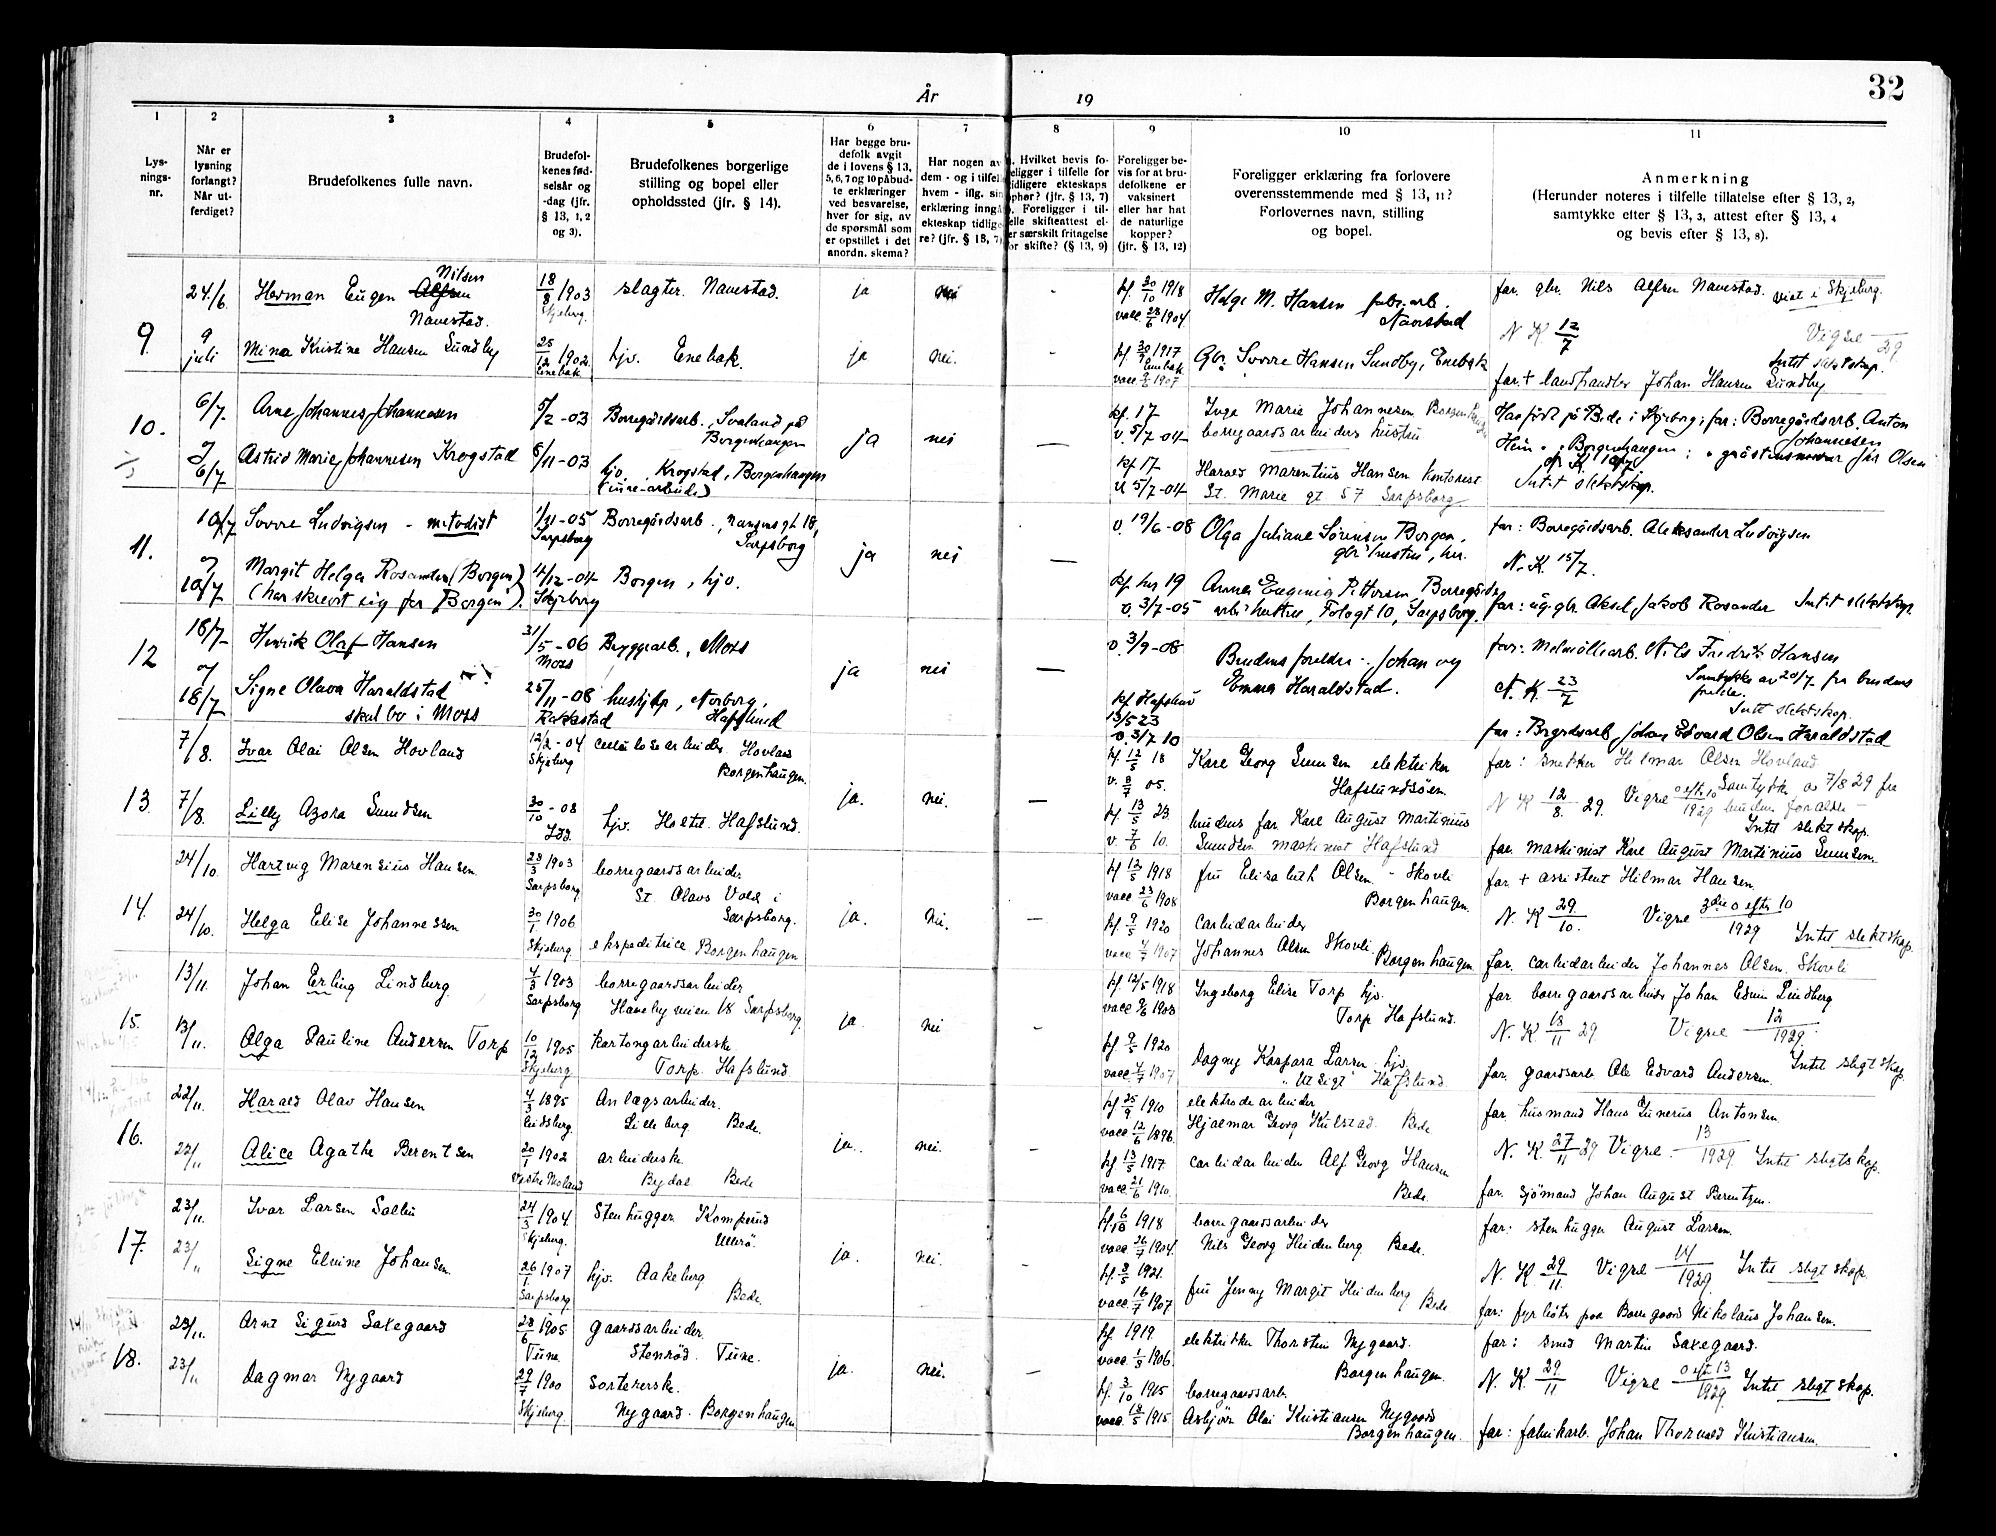 32
År 19
1
2
3
4
5
6
7
8
9
10
11
Lys-
nings-
nr.
Når er
lysning
forlangt?
Når ut-
ferdiget?
Brudefolkenes fulle navn.
Brudefol-
kenes fød-
selsår og
-dag (jfr.
§ 13, 1, 2
og 3).
Brudefolkenes borgerlige
stilling og bopel eller
opholdssted (jfr. § 14).
Har begge bru-
defolk avgit
de i lovens § 13,
5, 6, 7 og 10 påbud-
te erklæringer
ved besvarelse,
hver for sig, av
de spørsmål som
er opstillet i det
anordn. skema?
Har nogen av
dem - og i tilfel
hvem - iflg. sin
erklæring inngå
ekteskap tidlige
re? (jfr. § 13, 7)
Hvilket bevis fo-
religger i tilfelle for
tidligere ekteskaps
ophør? (jfr. § 13, 7)
Foreligger i til-
felle skifteattest el-
er særskilt fritagelse
for skifte? (§ 13, 9)
Foreligger be-
vis for at bru-
defolkene er
vaksinert
eller har hat
de naturlige
kopper?
(jfr. § 13, 12)
Foreligger erklæring fra forlovere
overensstemmende med § 13, 11?
Forlovernes navn, stilling
og bopel.
Anmerkning
(Herunder noteres i tilfelle tillatelse efter § 13, 2,
samtykke efter § 13, 3, attest efter § 13, 4
og bevis efter § 13, 8).
9.
24/6 Herman Eugen Nilsen
Navestad. 18/8 1903 Skjeberg. slagter. Navestad. ja nei - kf. 30/10 1918 vacc 28/6 1904 Helge M. Hansen fabr. arb. Navestad far. gbr. Nils Alfsen Navestad. viet i Skjeberg.
N. K. 12/7 Vigsel 29
9 juli Mina Kristine Hansen Sundby 25/12 1902 Enebak hjv. Enebak. ja nei. - kf 30/9 1917 Enebak vacc. 1907 Gbr. Sverre Hansen Sundby, Enebak Intet slektskap.
far. + landhandler Johan Hansen Sundby
10.
6/7. Arne Johannes Johannesen 5/2 -03 Borregårdsarb., Svaland på
Borgenhaugen ja nei — kf. 17 v. 5/7 -04 Inga Marie Johannesen
borregaardsarbeiders hustru Han født på Bede i Skjeberg; far: Borregårdsarb. Anton
Johannesen
og 6/7 Astrid Marie Johannesen Krogstad 6/11 -03 hjv., Krogstad, Borgenhaugen kf 17 v 5/7 -04 Harald Marentius Hansen kontorist
St. Marie gt 57 Sarpsborg Hun " i Borgenhaugen; Olsen
Intet slektskap.
11.
10/7 Sverre Ludvigsen - metodist 1/11 -05 Sarpsborg Borregårdsarb., Nansens gt 18,
Sarpsborg ja nei — v. 19/6 -08 Olga Juliane Sørensen Borgen,
gbr. hustru, her. far: Borregårdsarb. Aleksander Ludvigsen
N. K. 15/7.
og 10/7 Margit Helga Rosander (Borgen)
(har skrevet sig for Borgen). 14/12 -04 Skjeberg Borgen, hjv. kf. her 19 v. 3/7 -05 Anna Eugenia Pettersen, Borregårds
arb. hustru, Tolagt 10, Sarpsborg. far: ug. gbr. Aksel Jakob Rosander Intet slektskap.
12
18/7 Henrik Olaf Hansen 31/5 -06 Moss Byggearb., Moss ja nei — v. 3/9 -08 Brudens foreldre: Johan og
Emma Haraldstad. far: Melmöllearb. Nils Fredrik Hansen
N. K. 23/7 Samtykke av 20/7. fra brudens
foreldre.
Intet slektskap.
og 18/7 Signe Olava Haraldstad
skal bo i Moss 25/11 -08 Rakkestad hushjelp, Norborg,
Hafslund kf Hafslund 13/5 23 v 3/7 10 far: Brgrdsarb. Johan Edvard Olsen Haraldstad
13.
7/8. Ivar Olai Olsen Hovland 12/2 -04 Skjeberg cellulosearbeider Hovland
Borgenhaugen. ja. nei. — kf. 12/5 18 v. 8/7 05. Kåre Georg Svendsen elektriker
Hafslundsöen. far: snekker Hilmar Olsen Hovland
N. K 12/8. 29. Vigsel 1929 Samtykke av 7/8 29 fra
brudens forældre
7/8. Lilly Azora Svendsen 30/10 -08 Idd. hjv. Holtet. Hafslund. kf 13/5 23. v. 7/6 10. brudens far. Kåre August Martinius
Svendsen maskinist Hafslund Intet slektskap.
far. maskinist Kåre August Martinius Svendsen.
14.
24/10. Hartvig Marensius Hansen 28/3 1903 Sarpsborg borregaardsarbeider
St. Olavs Vold i
Sarpsborg. ja. nei. — kf 12/5 1918 vacc 23/6 1908 fru Elisabeth Olsen - Skovli
Borgenhaugen. far + assistent Hilmar Hansen.
N. K 29/10. Vigsel 3die s efter 10/1929 Intet slektskap.
24/10. Helga Elise Johannessen 30/1 1906 Skjeberg ekspeditrice Borgenhaugen kf. 9/5 1920 vacc 4/7 1907 carbidarbeider
Johannes Olsen Skovli Borgenhaugen far. carbidarbeider Johannes Olsen. Skovli
15.
13/11. Johan Erling Lindberg. 4/3 1903 Sarpsborg borregaardsarbeider
Hanebyveien 18 Sarpsborg. ja. nei - kf 12/5 1918 vacc 9/6 1903 Ingeborg Elise Torp hjv.
Torp Hafslund. far borregaardsarbeider Johan Edvin Lindberg
N. K 18/11 29 Vigsel 12/1929.
13/11. Olga Pauline Andersen Torp 10/12 1905 Skjeberg kartongarbeiderske
Torp. Hafslund kf 9/5 1920 vacc 4/7 1907 Dagny Kaspara Larsen hjv.
"Utsigt" Hafslund. far. gaardsarb. Ole Edvard Andersen. Intet slegtskap.
16.
22/11. Harald Olav Hansen 4/3 1895 Anlægsarbeider.
Lilleberg. Bede. ja. nei. - kf 25/9 1910 vacc 12/6 1896. elektrodearbeider
Hjalmar Georg Kulstad Bede far. husmand Hans Gunerius Antonsen
N. K. 27/11 29 Vigsel. 13/1929. Intet slegtskap.
22/11 Alice Agathe Berentsen 20/1 1902 Vestre Moland arbeiderske.
Bydal Bede kf 13/5 1917 vacc 21/6 1910. carbidarbeider Alf Georg Hansen
Bede. far. sjömand Johan August Berentzen.
17.
23/11. Ivar Larsen Solli 24/3 1904. Skjeberg. Stenhugger Komperud
Ullerö. ja. nei. - kf 6/10 1918 vacc 26/7 1904. borregaardsarbeider
Nils Georg Heidenberg Bede. far: stenhugger August Larsen.
N. K. 29/11. Vigsel 14/1929 Intet slegtskap.
23/11 Signe Elvine Johansen. 26/1. 1907 Sarpsborg hjv. Aakeberg
Bede. kf. 8/5 1921. vacc. 16/7 1907 fru Jenny Margit Heidenberg Bede far: fyrböter paa Borregaard Nikolaus Johansen.
18.
23/11. Arnt Sigurd Saxegaard 28/6 1905 Tune gaardsarbeider.
Stenröd. Tune. ja. nei. — kf. 1919. vacc. 1/9 1906. elektriker Thorstein Nygaard.
Borgenhaugen. far: smed Martin Saxegaard.
N. K. 29/11 Vigsel 13/1929. Intet slegtskap.
23/11 Dagmar Nygaard 29/7 1900 Skjeberg sorterske.
Nygaard. Borgenhaugen kf. 3/10 1915 vacc. 18/5 1915 borregaardsarb.
Asbjörn Olai Kristiansen Nygaard
Borgenhaugen. far: fabrikarb. Johan Thorvald Kristiansen.